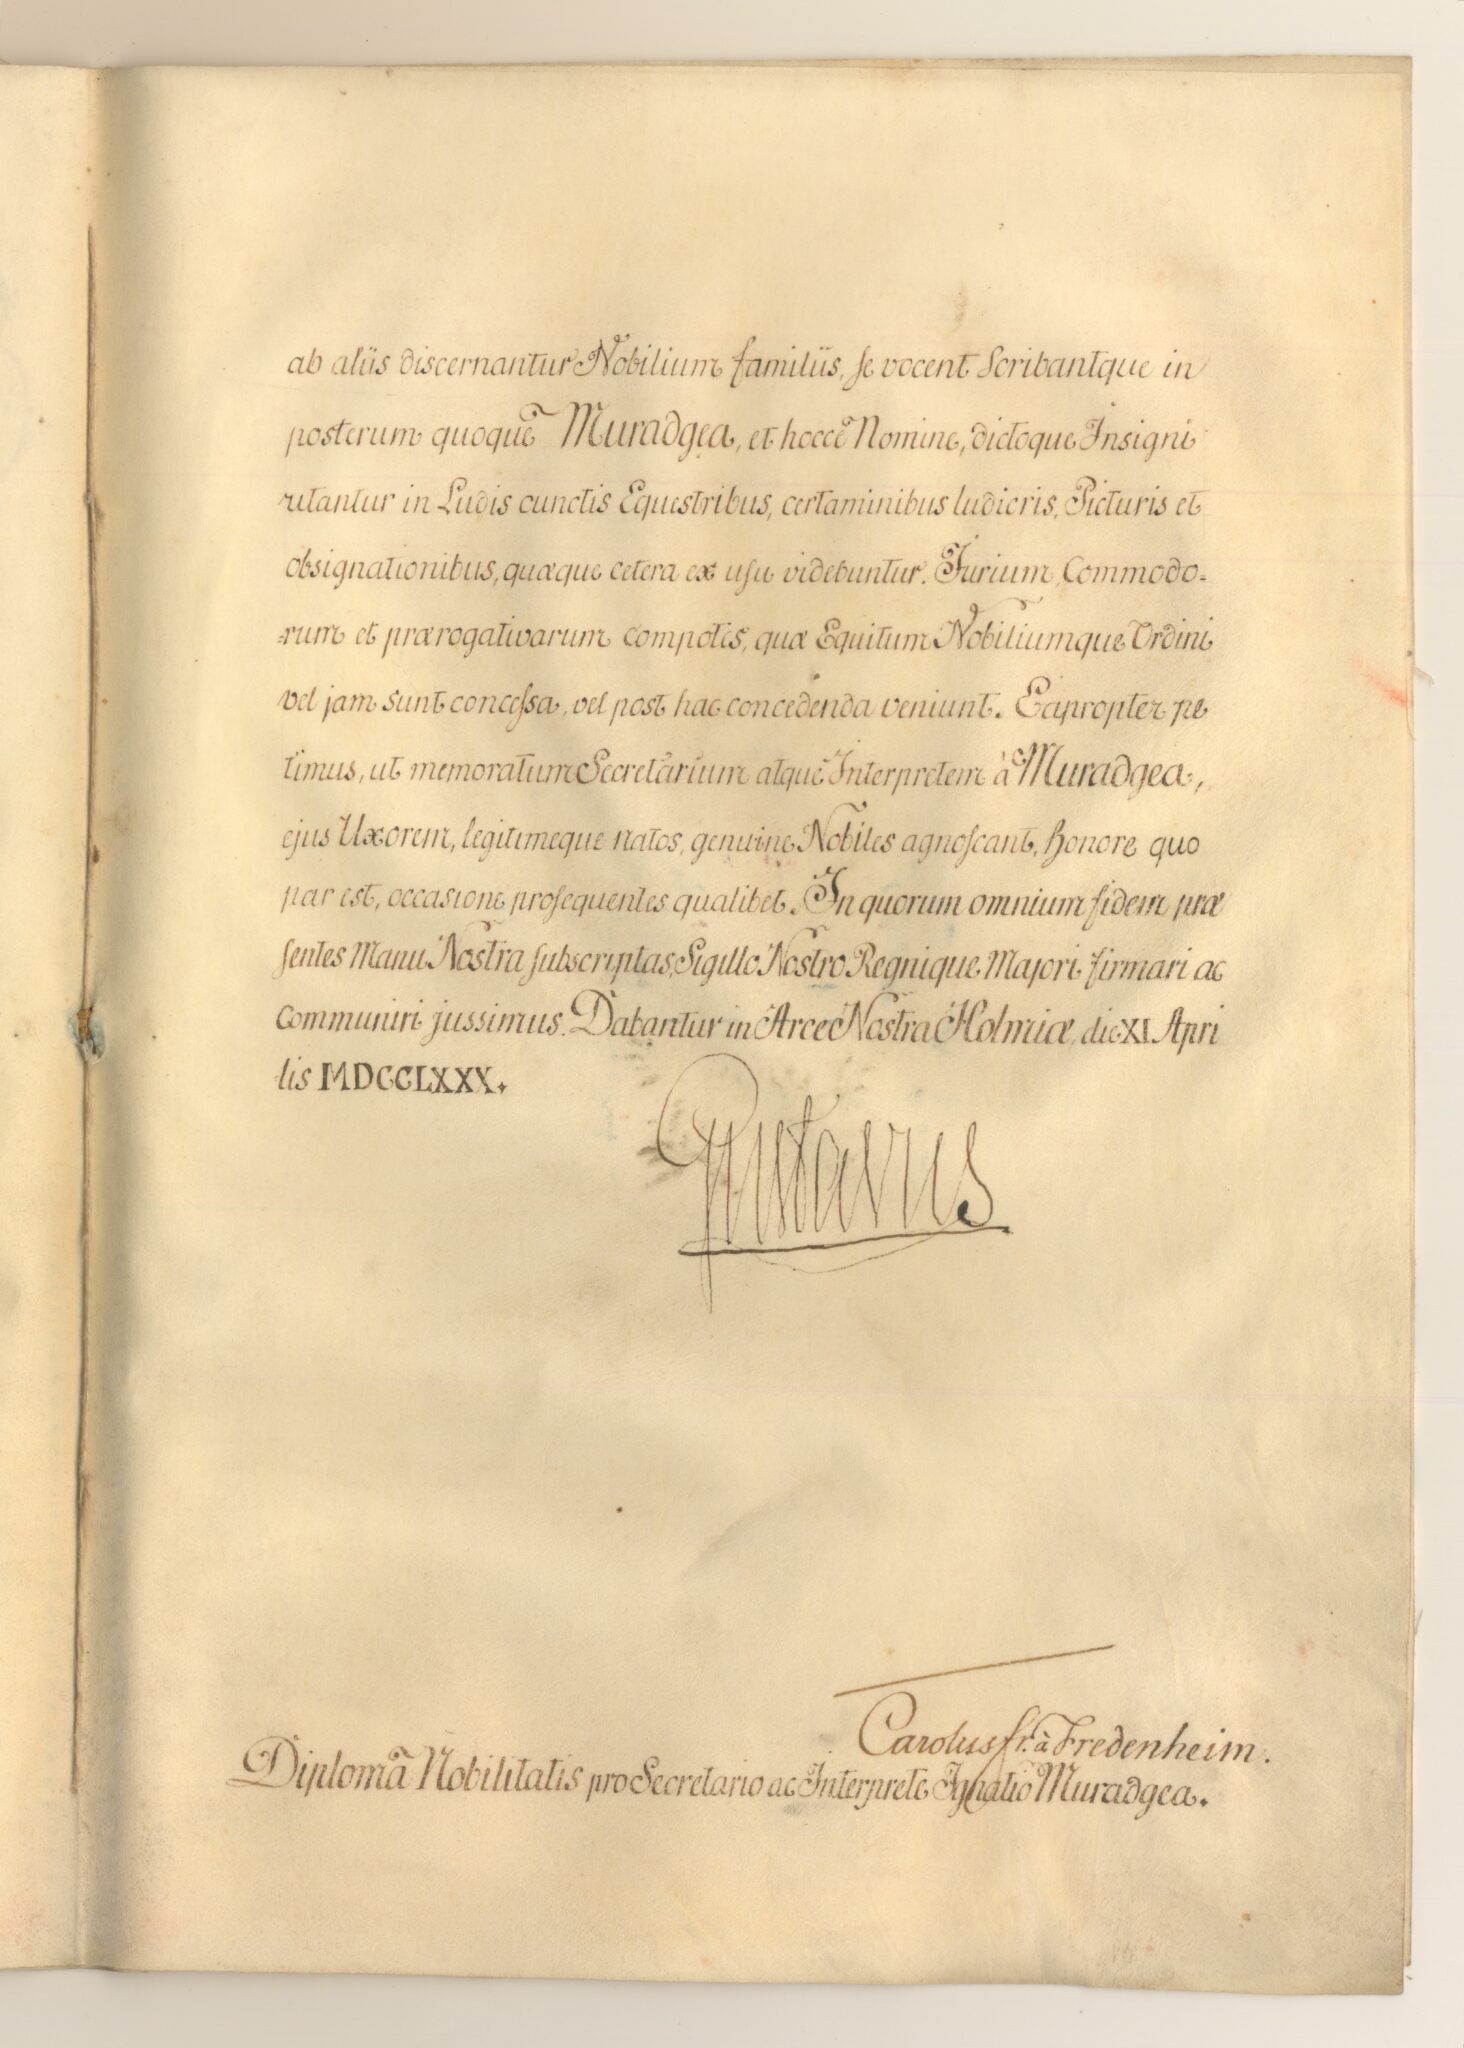 ab aliis discernantur Nobilium familiis, se vocent scribantque in
posterum quoque Muradgea, et hocce Nomine, dictoque Insigni
utantur in Ludis cunctis Equestribus, certaminibus ludicris, Picturis et
obsignationibus, quæque cetera ex usu videbuntur. Jurium, Commodo-
-rum et prærogativarum compotes, quæ Equitum Nobiliumque Ordini
vel jam sunt concessa, vel post hac concedenda veniunt. Eapropter pe
timus, ut memoratum Secretarium atque Interpretem à Muradgea,
ejus Uxorem, legitimeque natos, genuine Nobiles agnoscant, honore quo
par est, occasione prosequentes qualibet. In quorum omnium fidem præ
sentes Manu Nostra subscriptas, Sigillo Nostro Regnique Majori firmari ac
communiri jussimus. Dabantur in Arce Nostra Holmiæ, die XI. Apri
lis MDCCLXXX.
Gustavus
Carolus fr. à Fredenheim.
Diploma Nobilitatis pro Secretario ac Interprete Ignatio Muradgea.